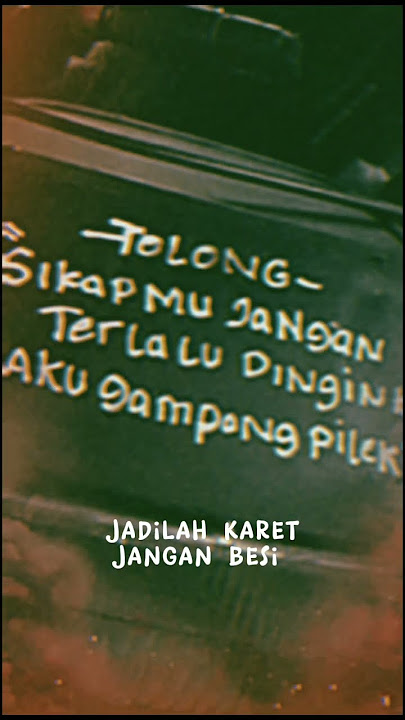 -TOLONG-
SIKAPMU JANGAN
TERLALU DINGIN
AKU GAMPANG PILEK
JADILAH KARET
JANGAN BESI